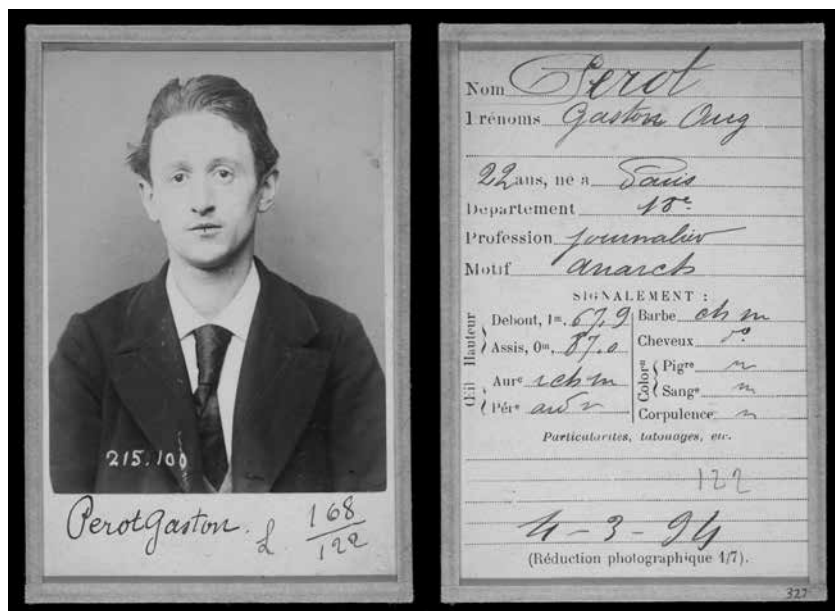 215.100
Perot Gaston. L 168
122
Nom Perot
Prénoms Gaston Aug
22 ans, né a Paris
Département 18e
Profession journalier
Motif anarch
SIGNALEMENT :
Hauteur
Debout, 1m. 67,9
Assis, 0m. 87.0
Œil
Aure r ch m
Pére
Barbe ch m
Cheveux do
Coloron
Pigre n
Sange m
Corpulence n
Particularités, tatouages, etc.
122
4-3-94
(Réduction photographique 1/7).
327